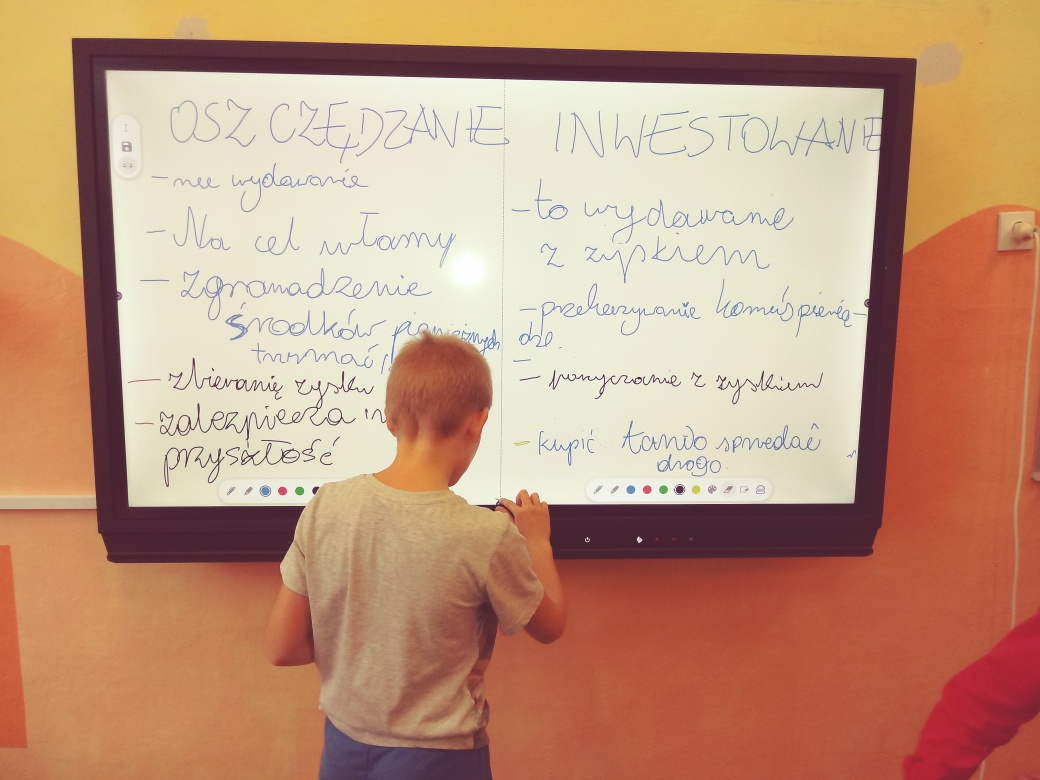 OSZCZĘDZANIE
- nie wydawanie
- Na cel własny
- Zgromadzenie
środków pieniężnych
- zbieranię zysku
- zabezpiecza
przyszłość
INWESTOWANIE
- to wydawanie
z zyskiem
- przekazywanie komuś pienię-
dze.
-
- pożyczanie z zyskiem
- kupić tanio sprzedać
drogo